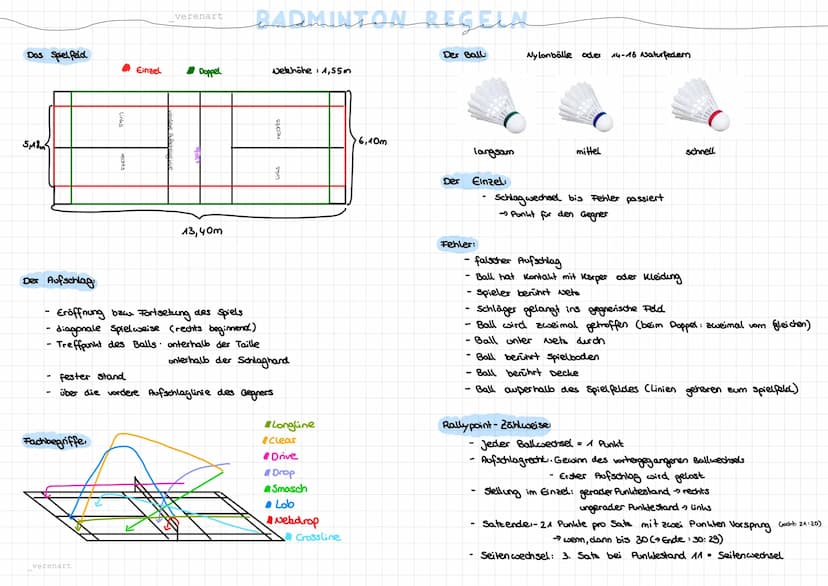 _verenart
BADMINTON REGELN
Das Spielfeld
Einzel
Doppel
Netzhöhe: 1,55m
links
rechts
rechts
links
Netz
6,10m
13,40m
Der Aufschlag:
- Eröffnung bzw. Fortsetzung des Spiels
- diagonale Spielweise (rechts beginnend)
- Treffpunkt des Balls: unterhalb der Taille
unterhalb der Schlaghand
- fester Stand
- über die vordere Aufschlaglinie des Gegners
Fachbegriffe:
Longline
Clear
Drive
Drop
Smasch
Lob
Netzdrop
Crossline
_verenart
Der Ball:
Nylonbälle oder 14-16 Naturfedern
langsam
mittel
schnell
Der Einzel:
- Schlagwechsel bis Fehler passiert
→ Punkt für den Gegner
Fehler:
- falscher Aufschlag
- Ball hat Kontakt mit Körper oder Kleidung
- Spieler berührt Netz
- Schläger gelangt ins gegnerische Feld
- Ball wird zweimal getroffen (beim Doppel: zweimal vom gleichen)
- Ball unter Netz durch
- Ball berührt Spielboden
- Ball berührt Decke
- Ball außerhalb des Spielfeldes (Linien gehören zum Spielfeld)
Rallypoint-Zählweise:
- jeder Ballwechsel = 1 Punkt
- Aufschlagrecht: Gewinn des vorhergegangenen Ballwechsels
- Erster Aufschlag wird gelost
- Stellung im Einzel: gerader Punktestand → rechts
ungerader Punktestand → links
- Satzende: 21 Punkte pro Satz mit zwei Punkten Vorsprung (nicht: 21:20)
→ wenn, dann bis 30 (→ Ende: 30:29)
- Seitenwechsel: 3. Satz bei Punktestand 11 = Seitenwechsel